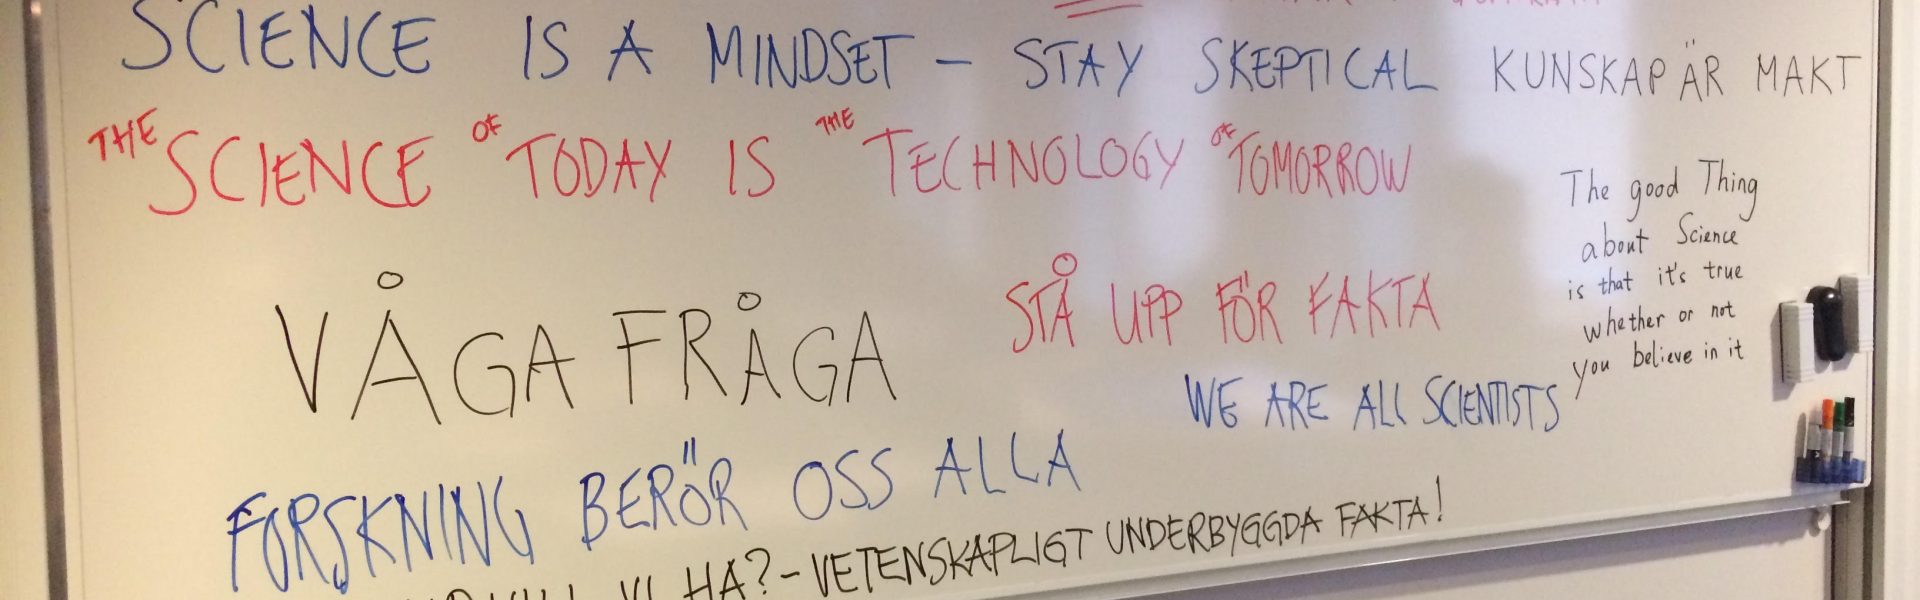 SCIENCE IS A MINDSET – STAY SKEPTICAL
KUNSKAP ÄR MAKT
THE SCIENCE OF TODAY IS THE TECHNOLOGY OF TOMORROW
The good Thing
about Science
is that it's true
whether or not
you believe in it
VÅGA FRÅGA
STÅ UPP FÖR FAKTA
WE ARE ALL SCIENTISTS
FORSKNING BERÖR OSS ALLA
VILL VI HA? – VETENSKAPLIGT UNDERBYGGDA FAKTA!